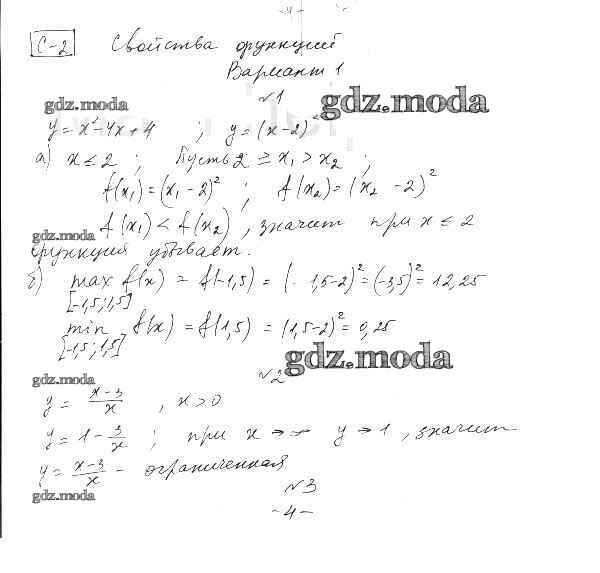 -4-
С-2 Свойства функций
Вариант 1
№1
gdz.moda gdz.moda
y = x² - 4x + 4 ; y = (x - 2)²
а) x ≤ 2 ; Пусть 2 ≥ x₁ > x₂ ;
f(x₁) = (x₁ - 2)² ; f(x₂) = (x₂ - 2)²
gdz.moda f(x₁) < f(x₂), значит при x ≤ 2
функция убывает.
б) max f(x) = f(-1,5) = (-1,5-2)² = (-3,5)² = 12,25
[-1,5; 1,5]
min f(x) = f(1,5) = (1,5-2)² = 0,25
[-1,5; 1,5]
gdz.moda
№2
gdz.moda
y = (x-3)/x , x > 0
y = 1 - 3/x ; при x → ∞ y → 1, значит
y = (x-3)/x - ограниченная
gdz.moda №3
-4-